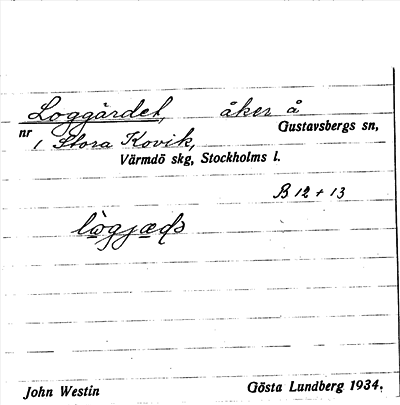 Loggärdet, åker å
Gustavsbergs sn,
nr 1 Stora Kovik,
Värmdö skg, Stockholms l.
B 12 + 13
John Westin Gösta Lundberg 1934.